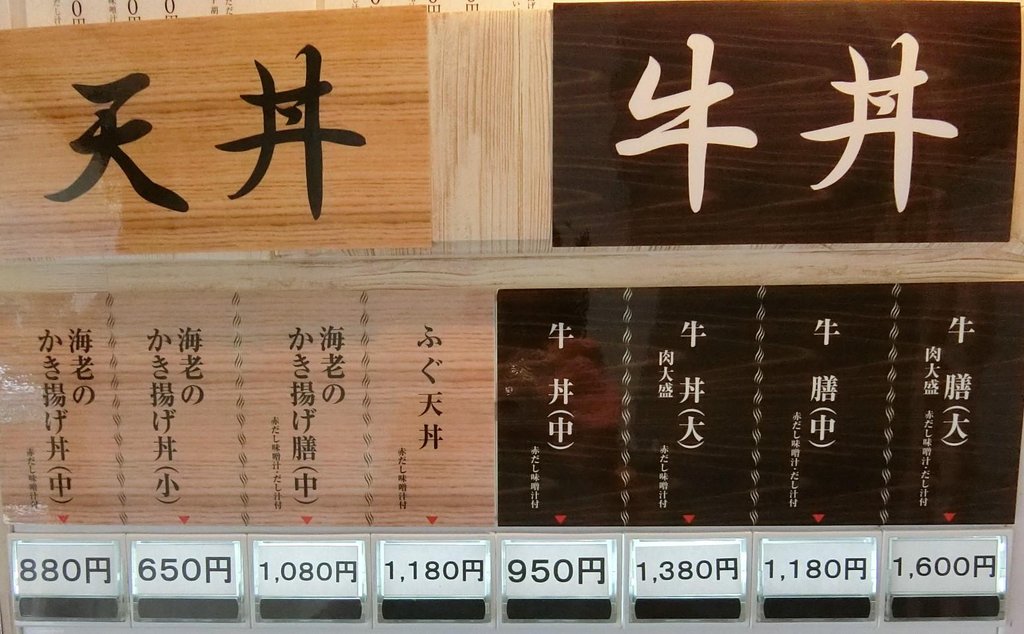 天丼
牛丼
海老の
かき揚げ丼(中)
赤だし味噌汁付
海老の
かき揚げ丼(小)
海老の
かき揚げ膳(中)
赤だし味噌汁・だし汁付
ふぐ天丼
赤だし味噌汁付
牛丼(中)
赤だし味噌汁付
牛丼(大)
肉大盛
赤だし味噌汁付
牛膳(中)
赤だし味噌汁・だし汁付
牛膳(大)
肉大盛
赤だし味噌汁・だし汁付
880円
650円
1,080円
1,180円
950円
1,380円
1,180円
1,600円